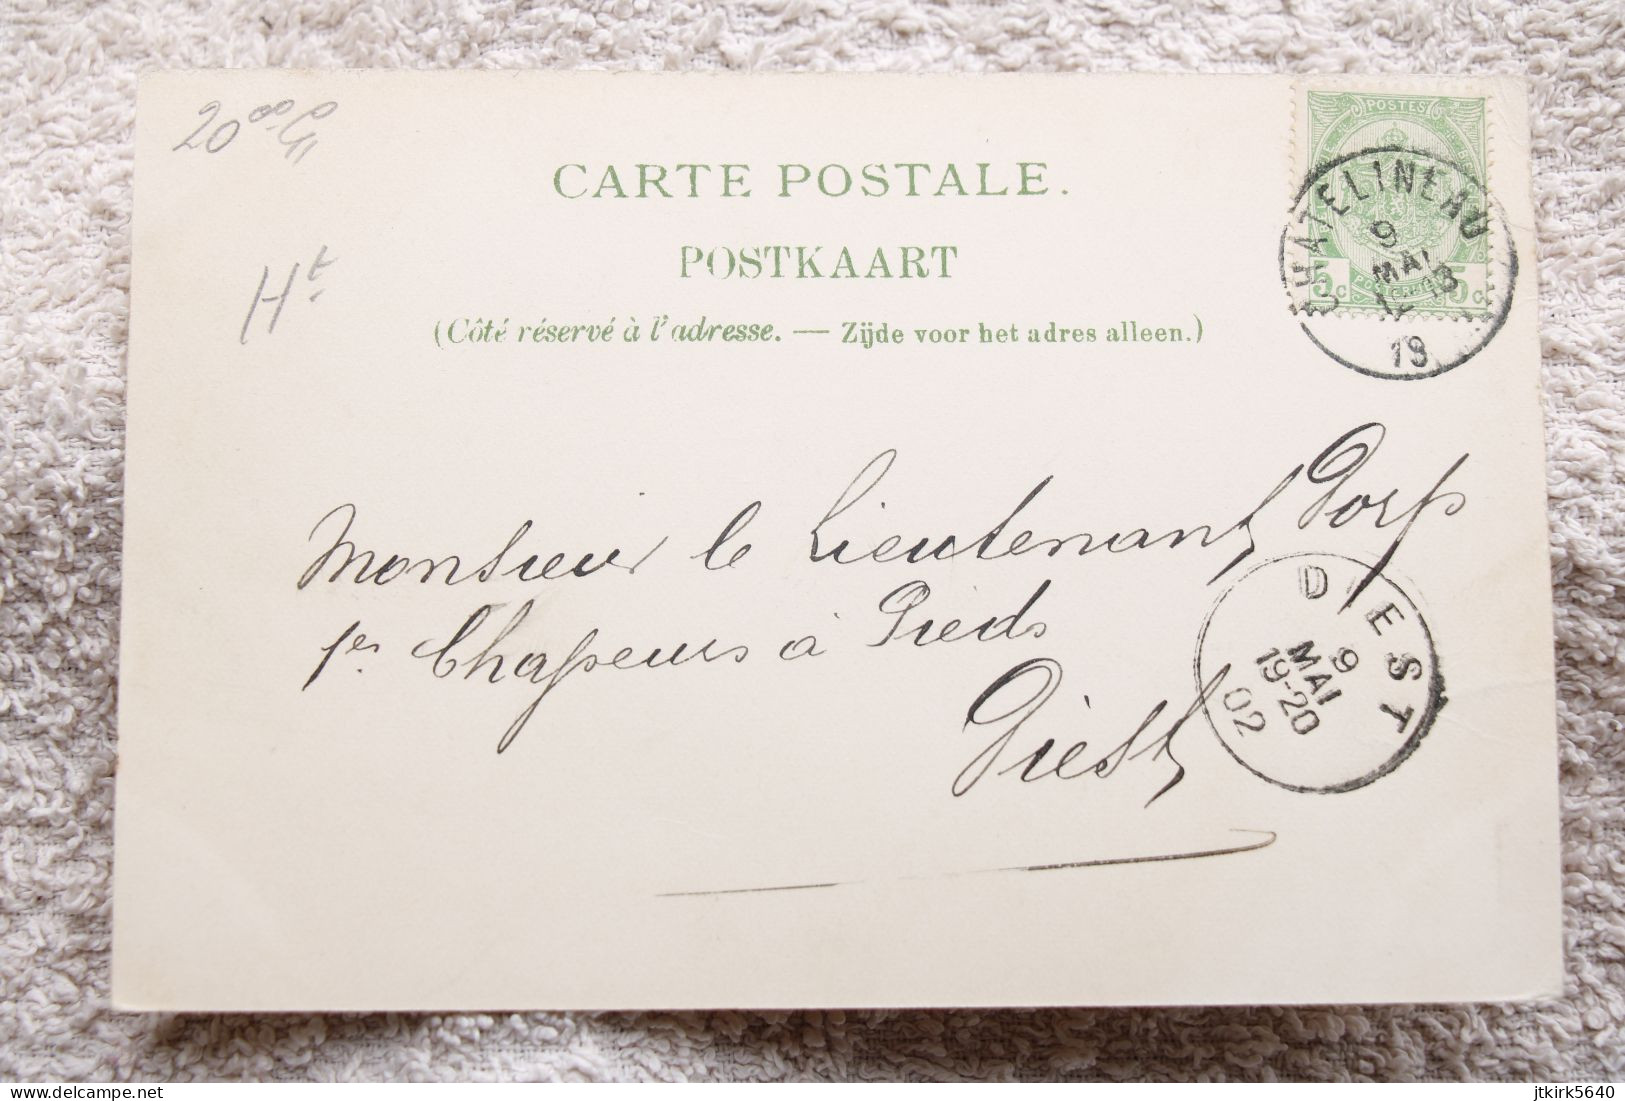 20 00
Ht
CARTE POSTALE.
POSTKAART
(Côté réservé à l'adresse. — Zijde voor het adres alleen.)
POSTES
5c 5c
CHATELINEAU
9
MAI
12-13
19
Monsieur le Lieutenant Dorp
1er Chapeurs à Pieds
Diest
DIEST
9
MAI
19-20
02
delcampe.net
jtkirk5640